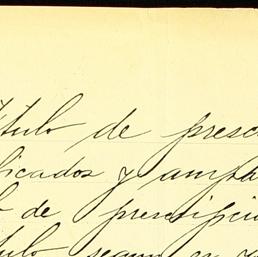 título de presc
licados y ampa
o de prescripció
tulo segun